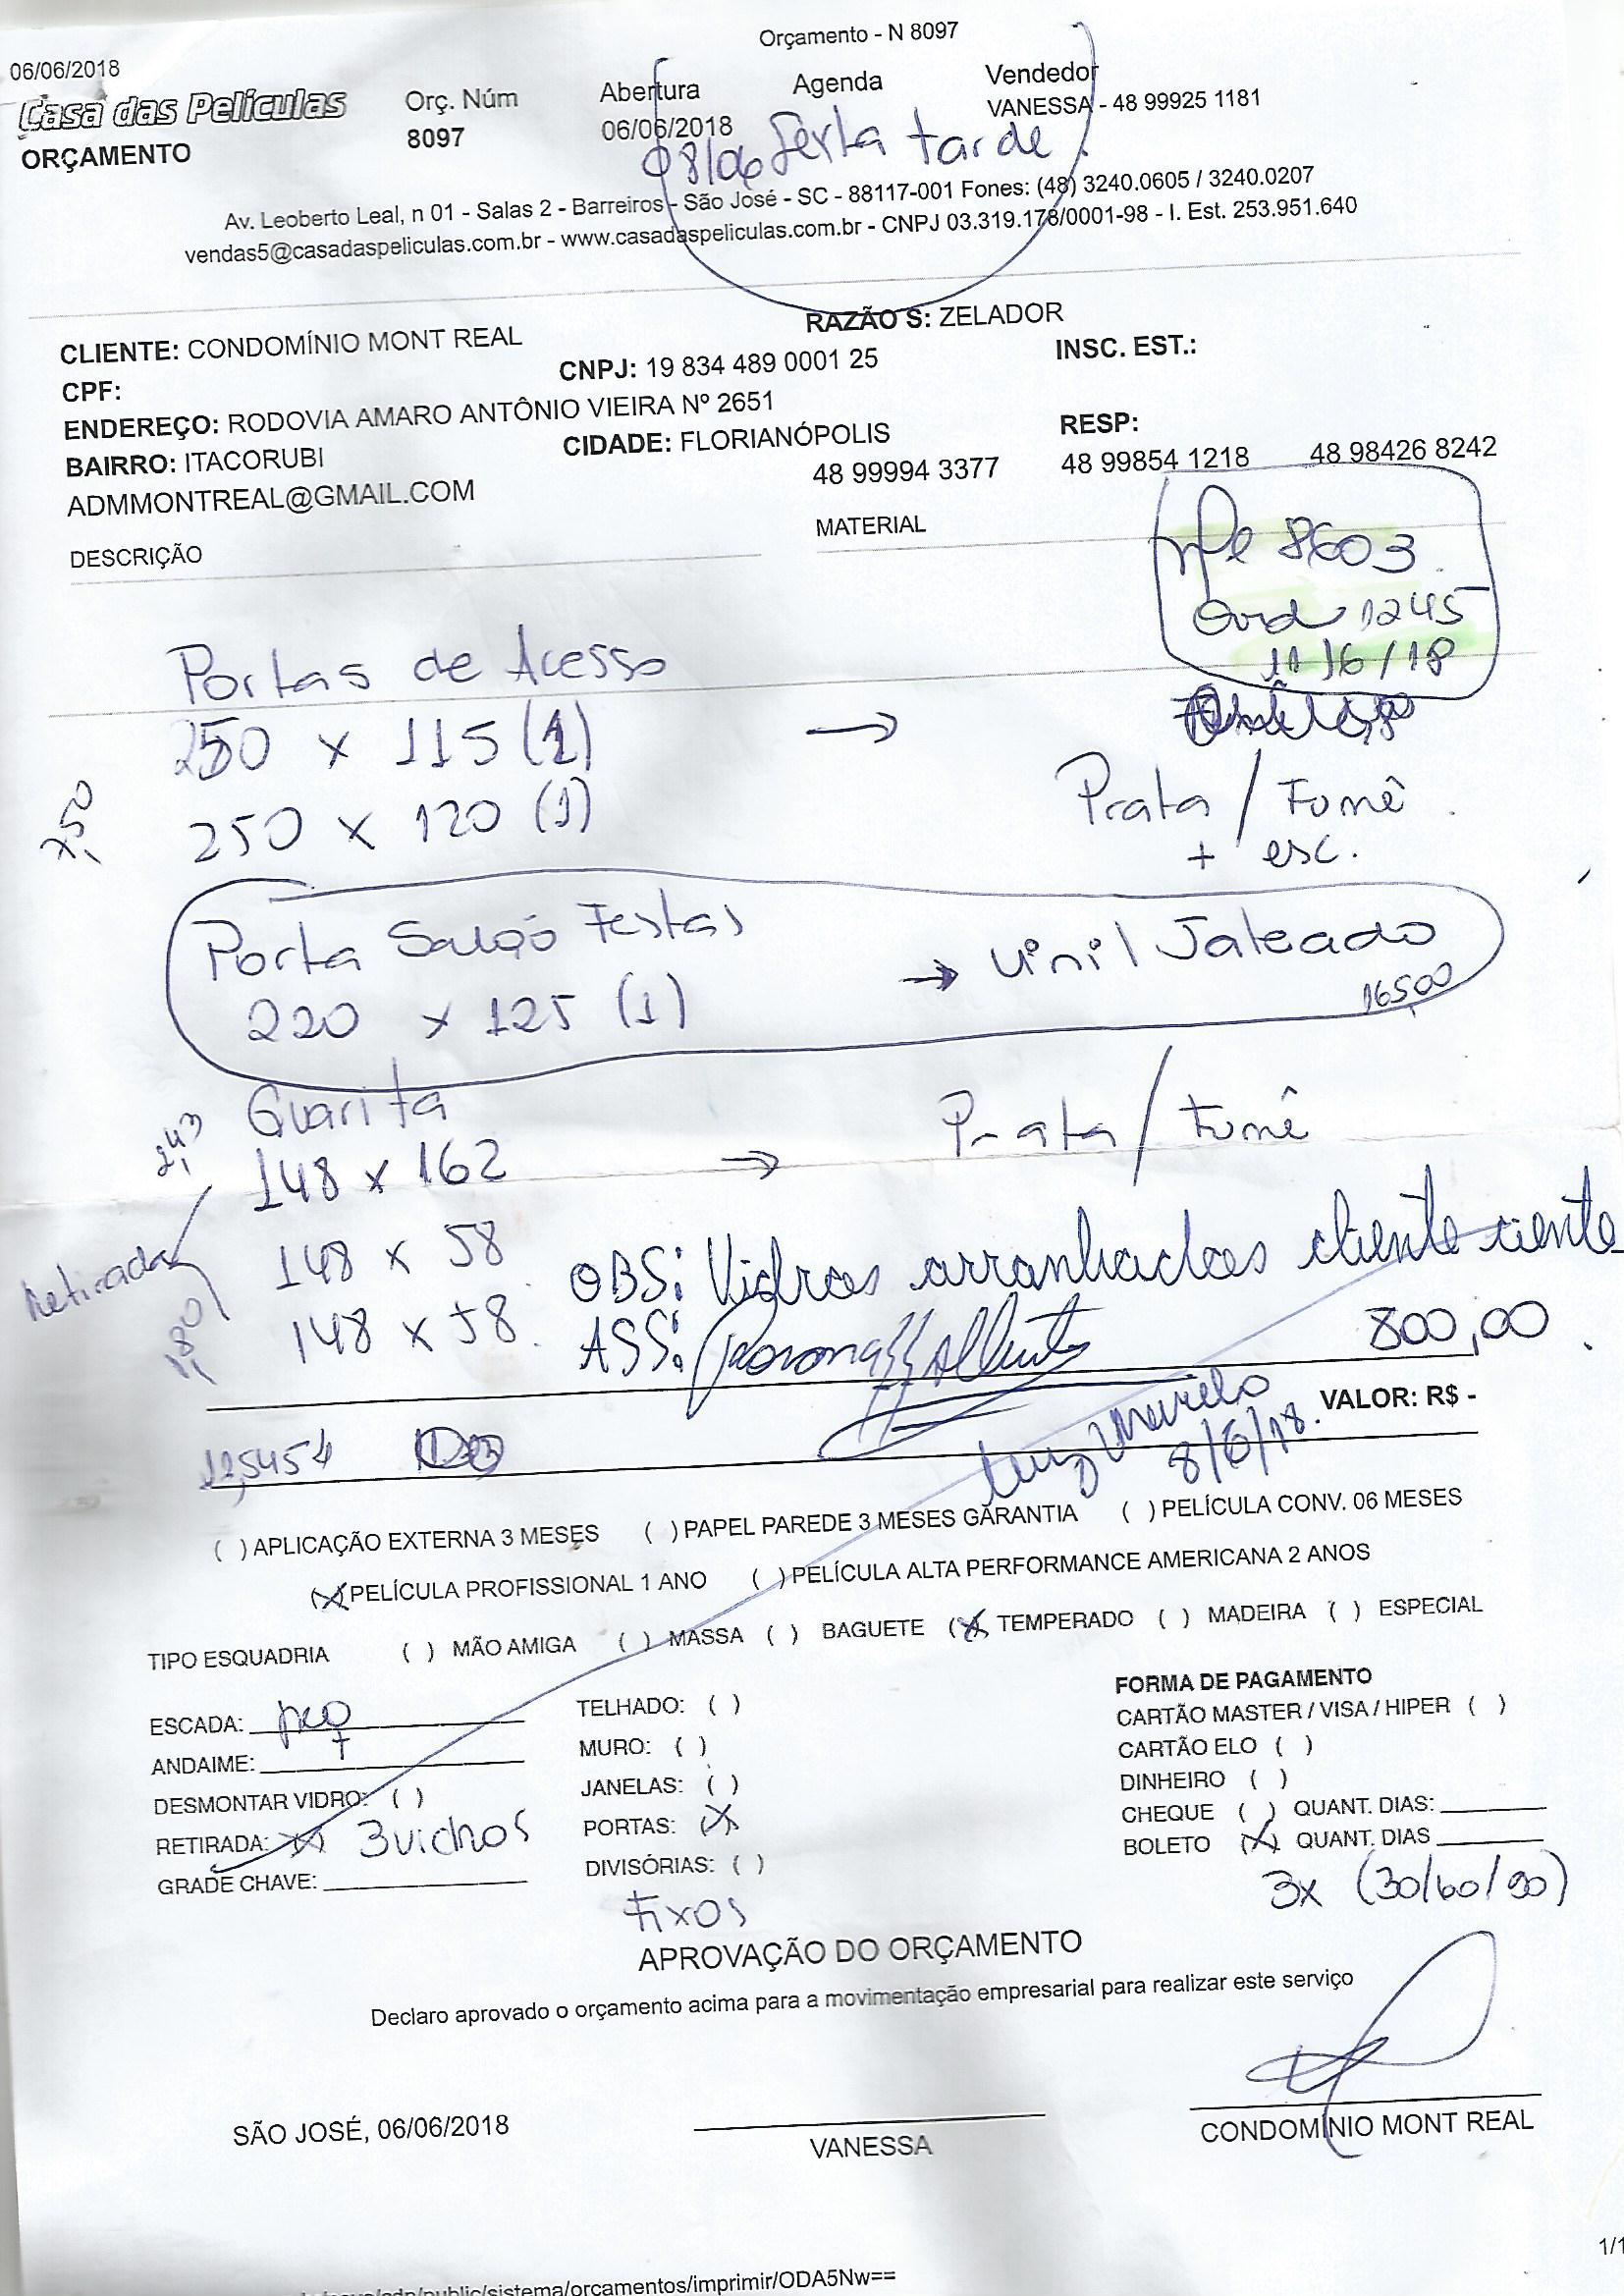 Orçamento - N 8097
06/06/2018
Casa das Películas
ORÇAMENTO
Orç. Núm
8097
Abertura
06/06/2018
Agenda
Vendedor
VANESSA - 48 99925 1181
08/06 Sexta tarde
Av. Leoberto Leal, n 01 - Salas 2 - Barreiros - São José - SC - 88117-001 Fones: (48) 3240.0605 / 3240.0207
vendas5@casadaspeliculas.com.br - www.casadaspeliculas.com.br - CNPJ 03.319.178/0001-98 - I. Est. 253.951.640
CLIENTE: CONDOMÍNIO MONT REAL RAZÃO S: ZELADOR
CPF: CNPJ: 19 834 489 0001 25 INSC. EST.:
ENDEREÇO: RODOVIA AMARO ANTÔNIO VIEIRA Nº 2651
BAIRRO: ITACORUBI CIDADE: FLORIANÓPOLIS RESP:
ADMMONTREAL@GMAIL.COM 48 99994 3377 48 99854 1218 48 98426 8242
DESCRIÇÃO MATERIAL
8603
Ord 1245
11/6/18
Portas de Acesso
250 x 115 (1) →
250 x 120 (1) Prata / Fumê
+ esc.
Porta Salão Festas → Vinil Jateado
220 x 125 (1) 165,00
Guarita Prata / Fumê
2,43 148 x 162 →
Retirada 148 x 58 OBS: Vidros arranhados cliente ciente
148 x 58 ASS: 800,00
VALOR: R$ -
12,5454
8/6/18.
( ) APLICAÇÃO EXTERNA 3 MESES ( ) PAPEL PAREDE 3 MESES GARANTIA ( ) PELÍCULA CONV. 06 MESES
(X) PELÍCULA PROFISSIONAL 1 ANO ( ) PELÍCULA ALTA PERFORMANCE AMERICANA 2 ANOS
TIPO ESQUADRIA ( ) MÃO AMIGA ( ) MASSA ( ) BAGUETE (X) TEMPERADO ( ) MADEIRA ( ) ESPECIAL
ESCADA: peq
ANDAIME:
DESMONTAR VIDRO: ( )
RETIRADA: (X) 3 vidros
GRADE CHAVE:
TELHADO: ( )
MURO: ( )
JANELAS: ( )
PORTAS: (X)
DIVISÓRIAS: ( )
Fixos
FORMA DE PAGAMENTO
CARTÃO MASTER / VISA / HIPER ( )
CARTÃO ELO ( )
DINHEIRO ( )
CHEQUE ( ) QUANT. DIAS:
BOLETO (X) QUANT. DIAS
3x (30/60/90)
APROVAÇÃO DO ORÇAMENTO
Declaro aprovado o orçamento acima para a movimentação empresarial para realizar este serviço
SÃO JOSÉ, 06/06/2018
VANESSA
CONDOMÍNIO MONT REAL
1/1
/public/sistema/orcamentos/imprimir/ODA5Nw==